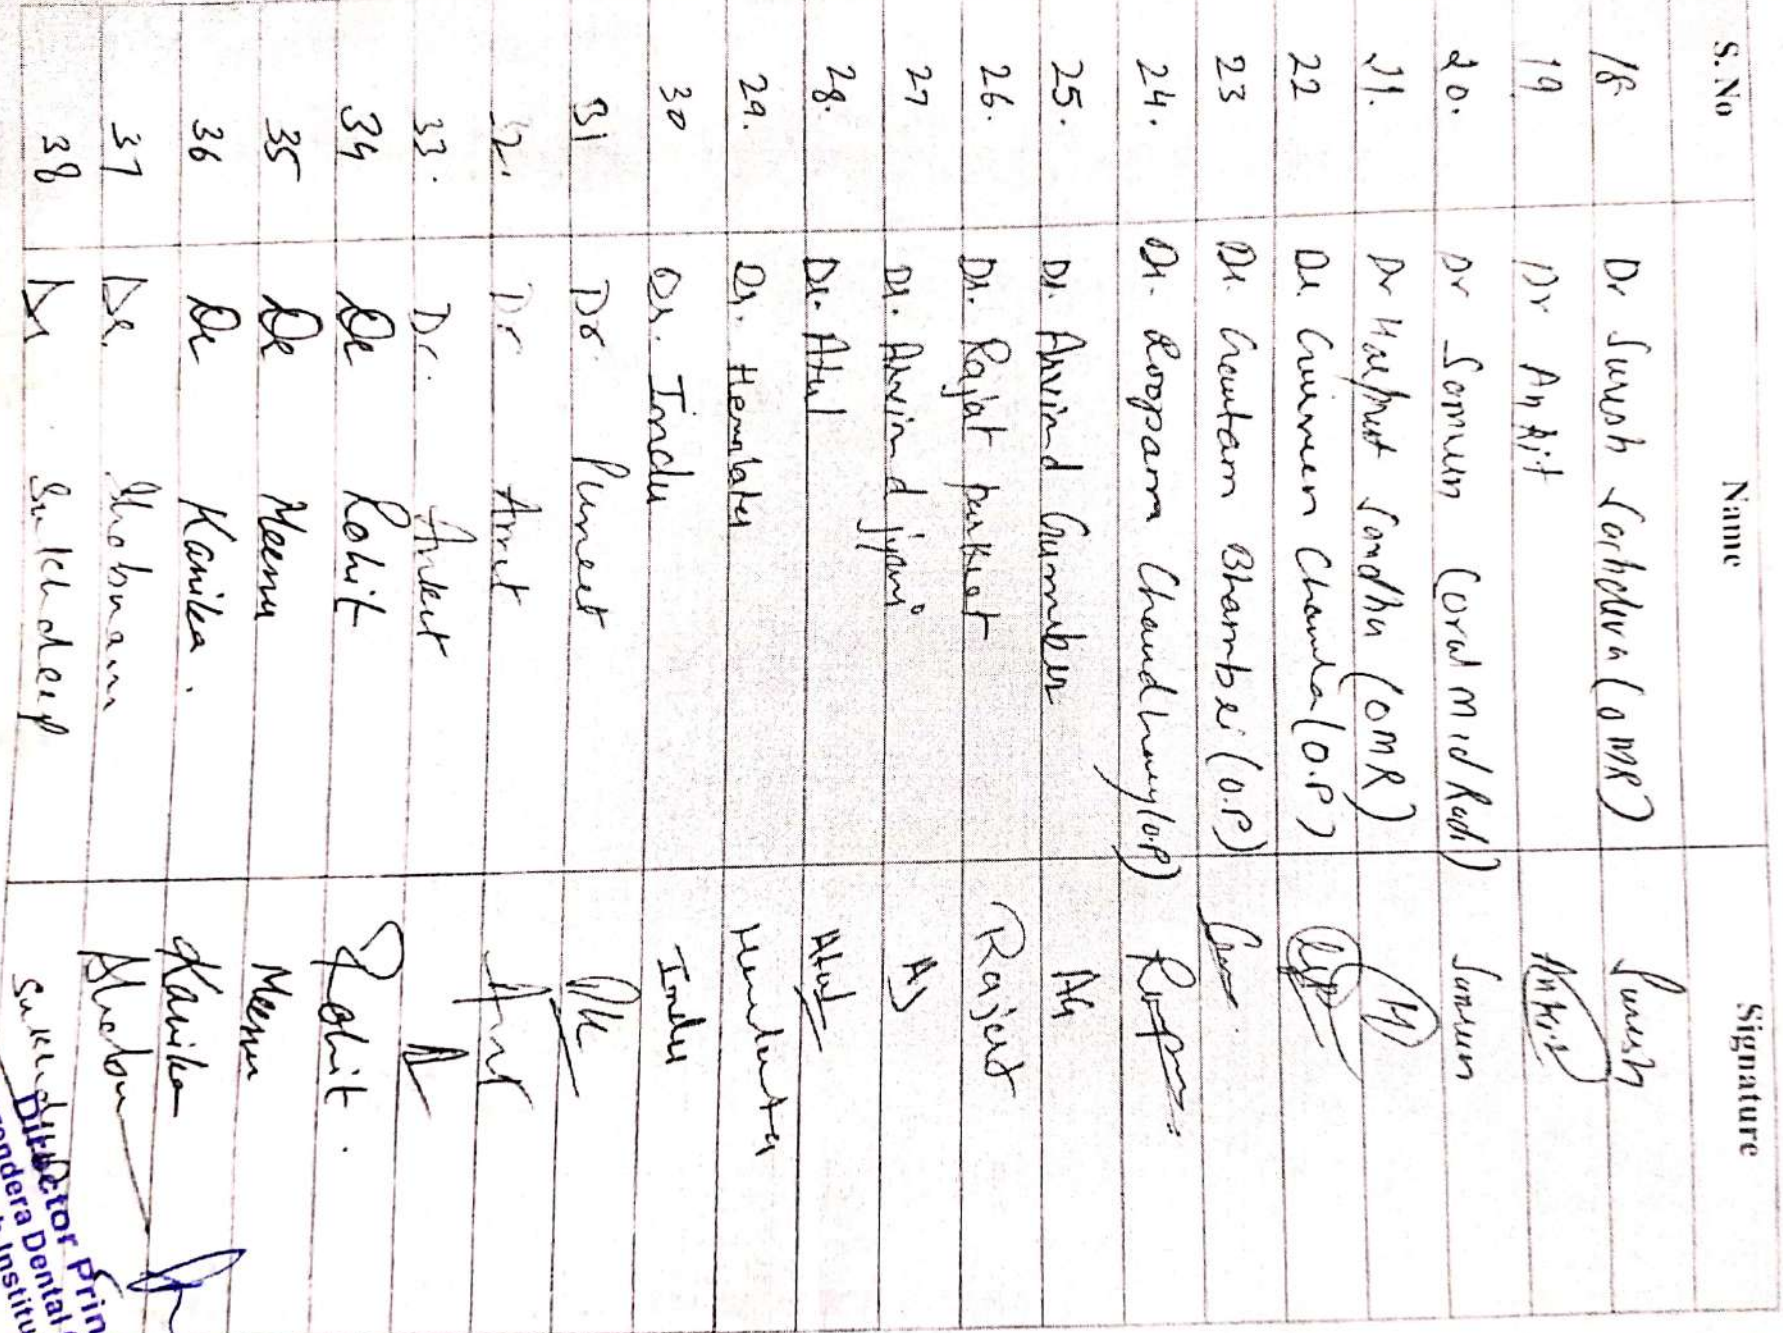 S. No Name Signature
18 Dr Suresh Sachdeva (OMR) Suresh
19 Dr Ankit Ankit
20. Dr Somum (oral Mid Radi)
21. Dr Harpreet Sandhu (OMR) H
22 Dr. Chawla (O.P)
23 Dr. Gautam Bhambri (O.P)
24. Dr. Roopam Chaudhary (O.P)
25. Dr. Arvind Gumber AG
26. Dr. Rajat Rajat
27 Dr. Arvind jyani AJ
28. Dr. Atul Atul
29. Dr. Hemlata Hemlata
30 Dr. Indu Indu
31 Dr. Puneet
32. Dr
33. Dr. Ankit A
34 Dr Rohit Rohit.
35 Dr Meenu Meenu
36 Dr Kanika. Kanika
37 Dr. Shobnam
38 Dr Sukhdeep Sukhdeep
Director Prin
endera Dental
Institu